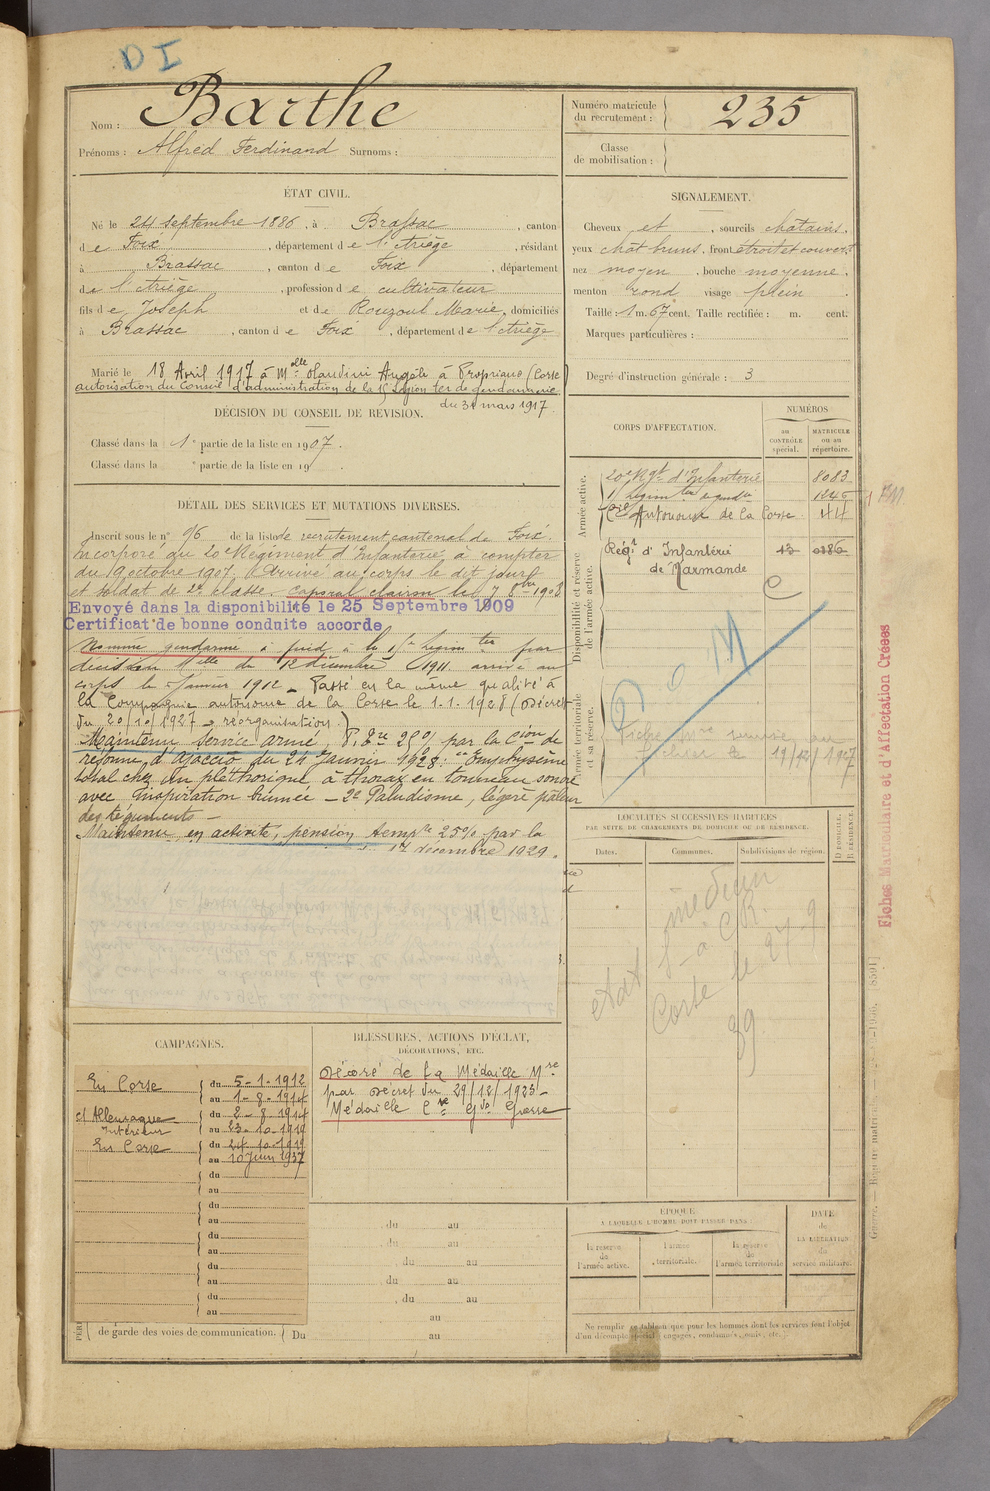 D I
Nom : Barthe
Prénoms : Alfred Ferdinand Surnoms :
Numéro matricule du recrutement : 235
Classe de mobilisation :
ÉTAT CIVIL.
Né le 24 septembre 1886, à Brassac, canton
de Foix, département de l'Ariège, résidant
à Brassac, canton de Foix, département
de l'Ariège, profession de cultivateur
fils de Joseph et de Rouzoul Marie, domiciliés
à Brassac, canton de Foix, département de l'Ariège
Marié le 18 Avril 1917 à Melle Olandini Angèle à Propriano (Corse)
autorisation du Conseil d'administration de la 15e Légion ter de gendarmerie
du 31 mars 1917.
DÉCISION DU CONSEIL DE REVISION.
Classé dans la 1e partie de la liste en 1907.
Classé dans la e partie de la liste en 19 .
DÉTAIL DES SERVICES ET MUTATIONS DIVERSES.
Inscrit sous le n° 96 de la liste de recrutement cantonal de Foix.
Incorporé au 20e Régiment d'Infanterie à compter
du 19 octobre 1907. Arrivé au corps le dit jour
et soldat de 2e classe. Caporal clairon le 7 8bre 1908
Envoyé dans la disponibilité le 25 Septembre 1909
Certificat de bonne conduite accordé
Nommé gendarme à pied à la 15e légion ter par
décision Melle du 12 décembre 1911 arrivé au
corps le janvier 1912 _ Passé en la même qualité à
la Compagnie autonome de la Corse le 1.1.1928 (Décret
du 20/10/1927 - réorganisation.)
Maintenu service armé, P. 25% par la Cion de
réforme d'Ajaccio du 24 Janvier 1928 : Emphysème
total chez un pléthorique à thorax en tonneau sonore
avec inspiration humée - 2e Paludisme, légère pâleur
des téguments -
Maintenu en activité, pension tempre 25% par la
17 décembre 1929.
CAMPAGNES.
En Corse du 5-1-1912
au 1-8-1914
c/ Allemagne du 2-8-1914
Intérieur au 23-10-1919
En Corse du 24-10-1919
au 10 juin 1937
du
au
du
au
du
au
du
au
du
au
de garde des voies de communication. Du au
BLESSURES, ACTIONS D'ÉCLAT,
DÉCORATIONS, ETC.
Décoré de la Médaille Mre
par décret du 29/12/1925 -
Médaille Cve Gde Guerre
du au
du au
du au
du au
du au
au
SIGNALEMENT.
Cheveux et, sourcils châtains,
yeux chat bruns, front étroit et couvert
nez moyen, bouche moyenne,
menton rond visage plein.
Taille : 1 m. 67 cent. Taille rectifiée : m. cent.
Marques particulières :
Degré d'instruction générale : 3
CORPS D'AFFECTATION.
NUMÉROS
au CONTRÔLE spécial.
MATRICULE ou au répertoire.
Armée active.
20e Rgt d'Infanterie 8083
Légion ter
Cie Autonome de la Corse 44
Disponibilité et réserve de l'armée active.
Régt d'Infanterie 13
de Marmande
C
D. O. M
Armée territoriale et sa réserve.
Fiche
fichier le
Fiches Matriculaire et d'Affectation Créées
LOCALITÉS SUCCESSIVES HABITÉES
PAR SUITE DE CHANGEMENTS DE DOMICILE OU DE RÉSIDENCE.
Dates. Communes. Subdivisions de région. D DOMICILE. R RÉSIDENCE.
Corse le 27-9
39
ÉPOQUE
À LAQUELLE L'HOMME DOIT PASSER DANS :
la réserve de l'armée active.
l'armée territoriale.
la réserve de l'armée territoriale
DATE de LA LIBÉRATION du service militaire.
Ne remplir ce tableau que pour les hommes dont les services font l'objet
d'un décompte spécial (engagés, condamnés, omis, etc.)